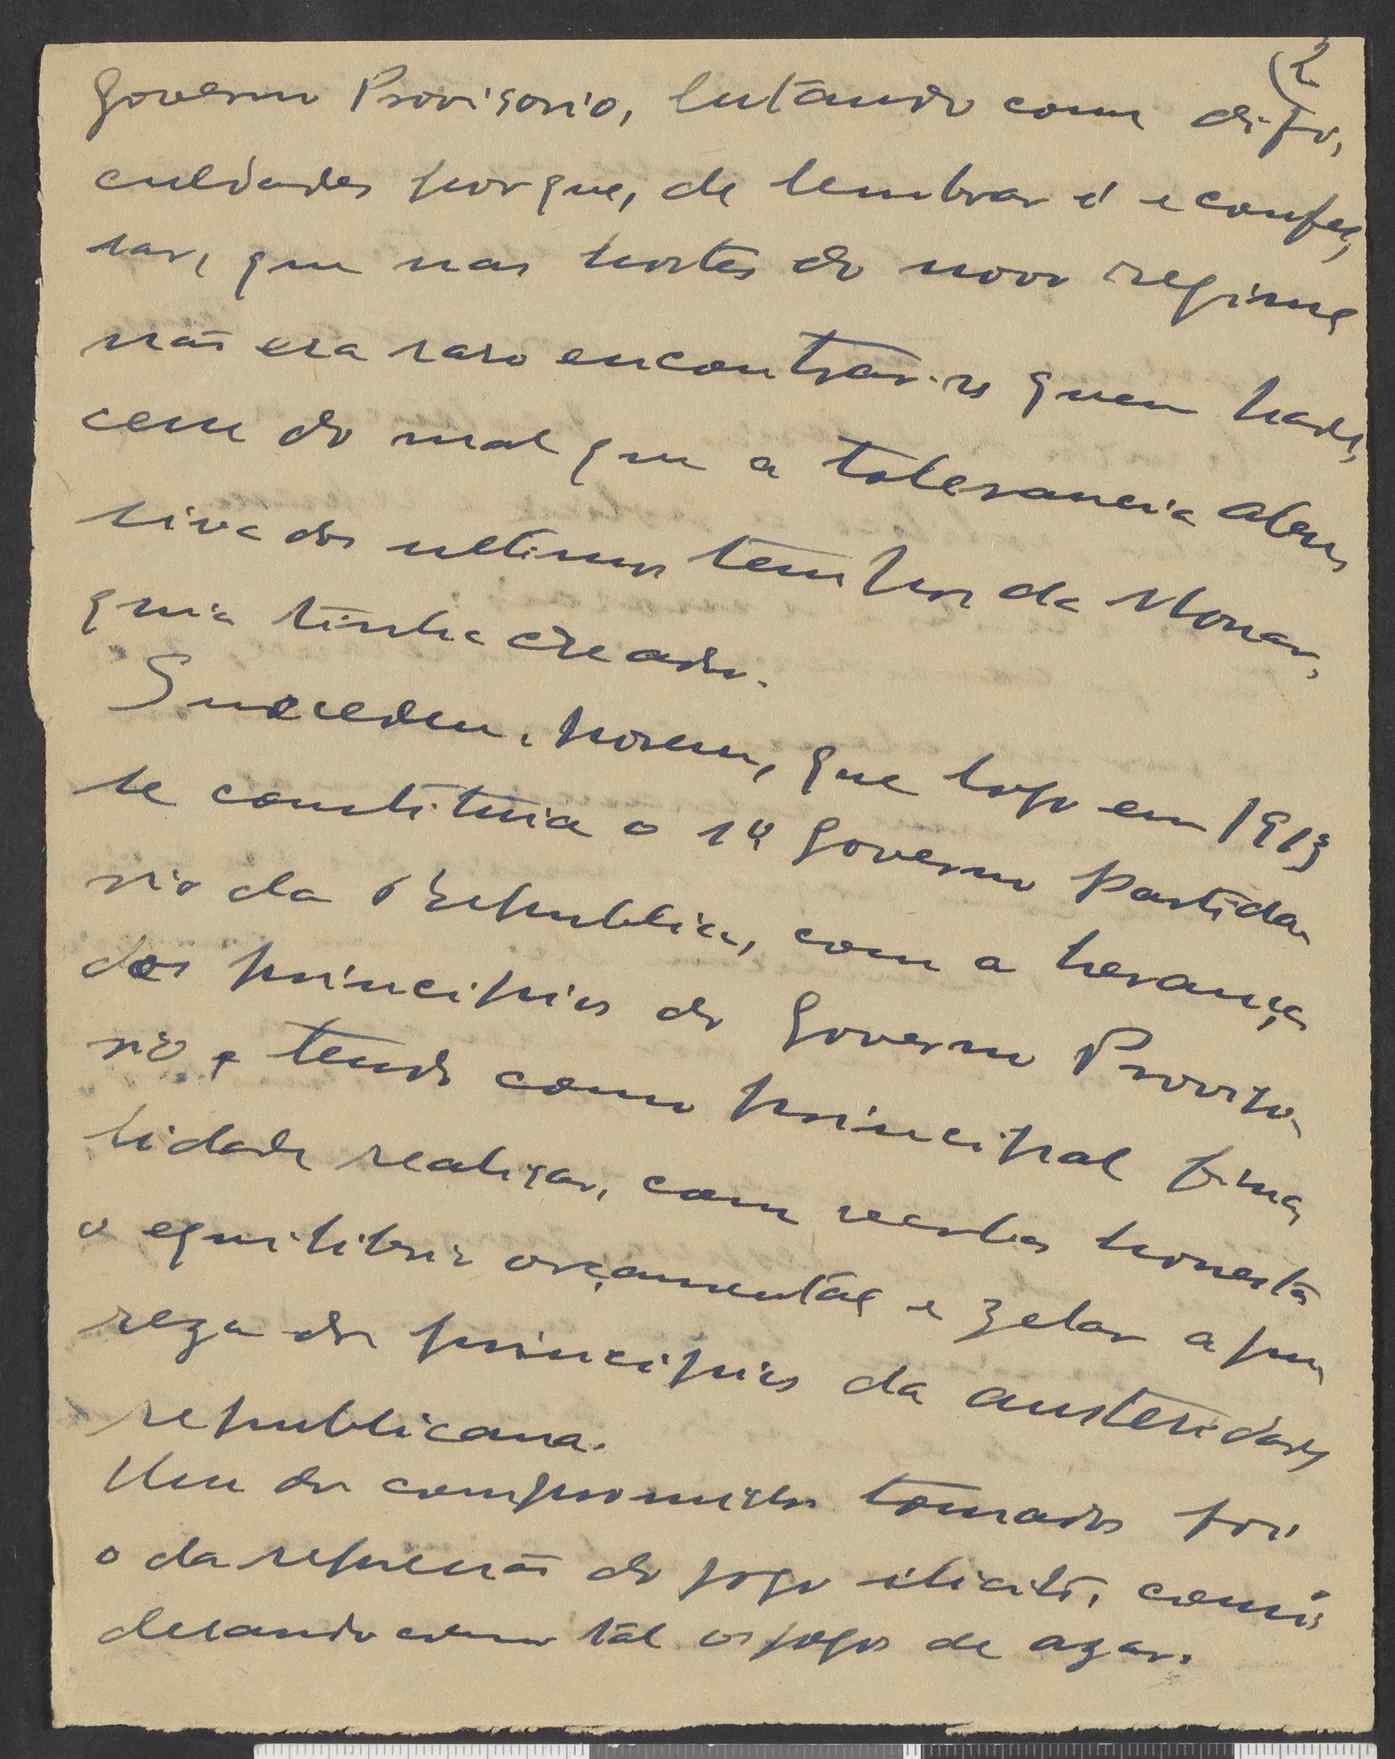 (2
Governo Provisorio, lutando com difi,
culdades porque, de lembrar é e confes,
sar, que nas hostes do novo regime
não era raro encontrar-se quem pade,
cem do mal que a tolerancia abu,
siva dos ultimos tempos da Monar,
quia tinha creado.
Sucedeu, porem, que logo em 1913
se constituia o 1º Governo Partida,
rio da Republica, com a herança
dos principios do Governo Proviso,
rio e tendo como principal fina,
lidade realizar, com verbas honestas
o equilibrio orçamental e zelar a pu,
reza dos principios da austeridade
republicana.
Um dos compromissos tomados foi
o da repressão do jogo ilicito, consi,
derando como tal os jogos de azar.